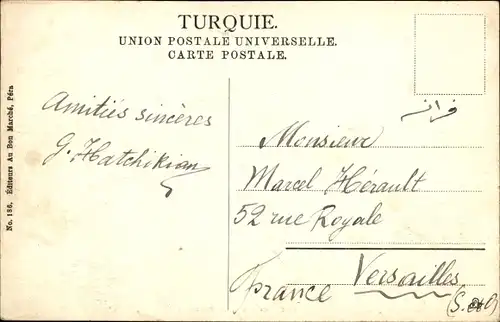 TURQUIE.
UNION POSTALE UNIVERSELLE.
CARTE POSTALE.
No. 136. Editeurs Au Bon Marché, Péra
Amitiés sincères
G. Hatchikian
فرانسه
Monsieur
Marcel Hérault
52 rue Royale
Versailles
(S. et O)
France